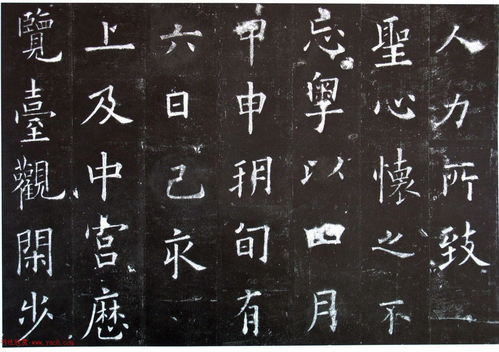 人力所致
聖心懷之不
忘粵以四月
甲申朔旬有
六日己亥
上及中宮歷
覽臺觀閑步
www.yac8.com